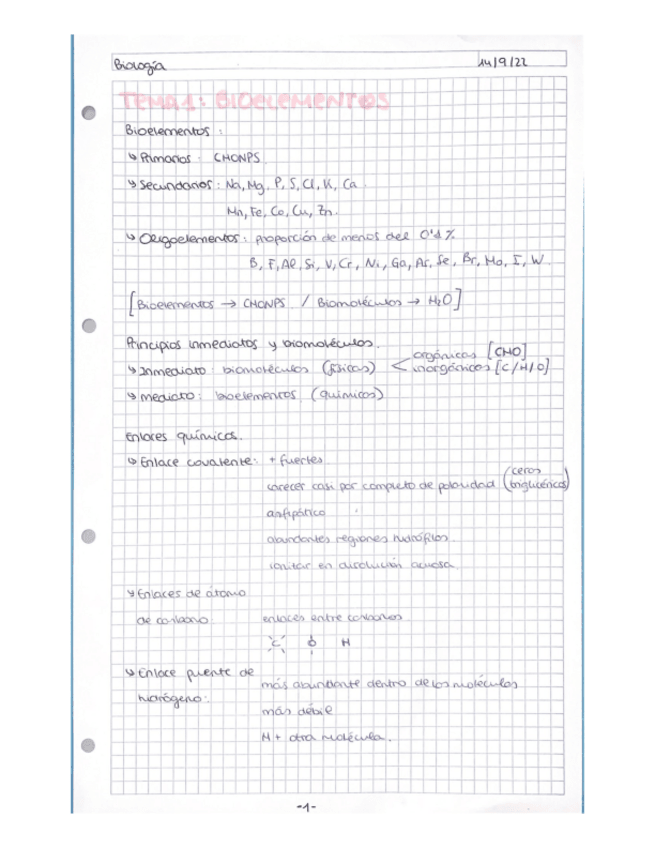 Biología 14/9/22
TEMA 1: BIOELEMENTOS
Bioelementos:
↳ Primarios: CHONPS
↳ Secundarios: Na, Mg, P, S, Cl, K, Ca
Mn, Fe, Co, Cu, Zn.
↳ Oligoelementos: proporción de menos del 0'1%
B, F, Al, Si, V, Cr, Ni, Ga, As, Se, Br, Mo, I, W
[Bioelementos → CHONPS / Biomoléculas → H₂O]
Principios inmediatos y biomoléculas.
↳ Inmediato: biomoléculas (físicas) < orgánicas [CHO]
inorgánicas [C/H/O]
↳ mediato: bioelementos (químicos)
Enlaces químicos.
↳ Enlace covalente: + fuertes
carecer casi por completo de polaridad (ceras
triglicéricos)
anfipático
abundantes regiones hidrófilas
ionizar en disolución acuosa
↳ Enlaces de átomo
de carbono enlaces entre carbonos
C O H
↳ Enlace puente de
hidrógeno: más abundante dentro de las moléculas
más débil
H + otra molécula.
-1-